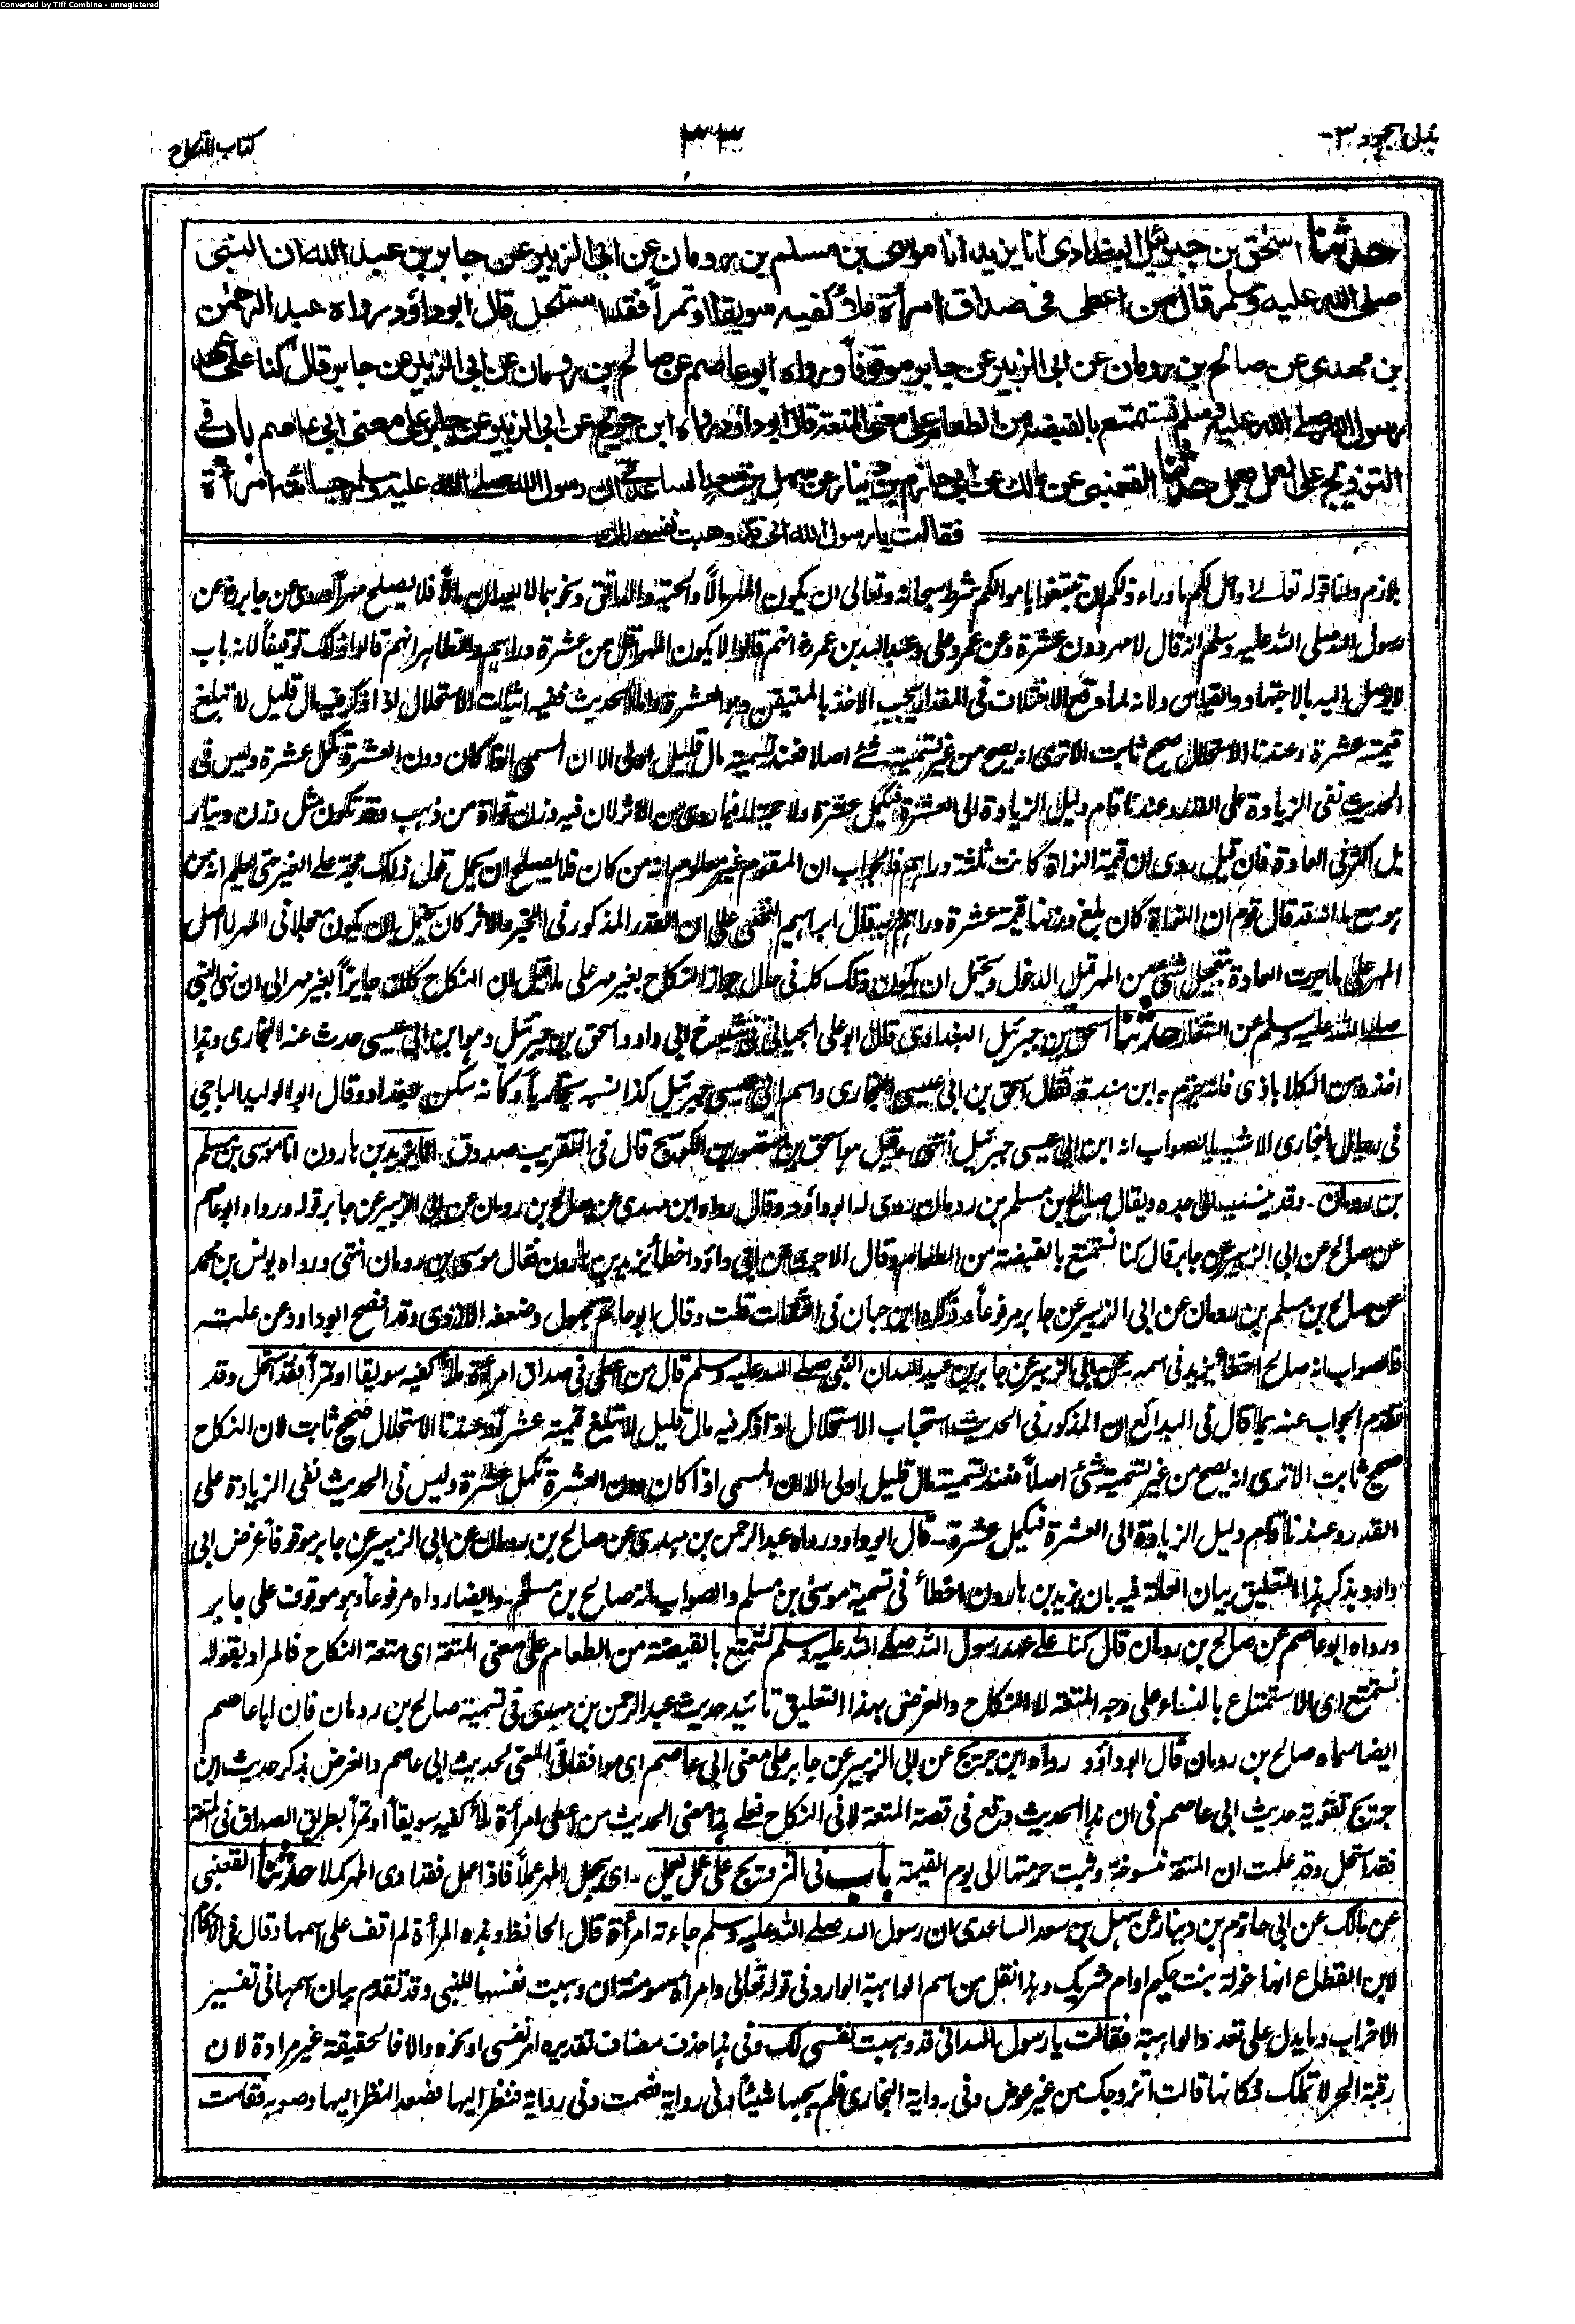 Converted by Tiff Combine - unregistered
بذل المجهود -٣
٣٣
كتاب النكاح
حدثنا اسحق بن جبرئيل البغدادى انا يزيد انا موسى بن مسلم بن رومان عن ابى الزبير عن جابر بن عبد الله ان النبى
صلى الله عليه وسلم قال من اعطى فى صداق امرأة ملأ كفيه سويقا او تمرا فقد استحل قال ابو داؤد رواه عبد الرحمٰن
بن مهدى عن صالح بن رومان عن ابى الزبير عن جابر موقوفاً ورواه ابو عاصم عن صالح بن رومان عن ابى الزبير عن جابر قال كنا على عهد
رسول الله صلى الله عليه وسلم نستمتع بالقبضة من الطعام على معنى المتعة قال ابو داؤد رواه ابن جريج عن ابى الزبير عن جابر على معنى ابى عاصم باب فى
التزويج على العمل يعمل حدثنا القعنبى عن مالك عن ابى حازم بن دينار عن سهل بن سعد الساعدى ان رسول الله صلے الله عليه وسلم جاءته امرأة
فقالت يا رسول الله انى قد وهبت نفسى لك
بلازم ولنا قوله تعالے واحل لكم ما وراء ذلكم ان تبتغوا باموالكم شرط سبحانه وتعالى ان يكون المهر مالاً والحبة والدانق ونحوهما لا يعدان مالاً فلا يصلح مهراً وعن جابر رضه عن
رسول الله صلى الله عليه وسلم انه قال لا مهر دون عشرة وعن عمر وعلى وعبد الله بن عمر انهم قالوا لا يكون المهر اقل من عشرة دراهم والظاهر انهم قالوا ذلك توقيفاً لانه باب
لا يوصل اليه بالاجتهاد والقياس ولانه لما وقع الاختلاف فى المقدار يجب الاخذ بالمتيقن وهو العشرة واما الحديث ففيه اثبات الاستحلال اذا ذكر فيه مال قليل لا تبلغ
قيمته عشرة وعندنا الاستحلال صحيح ثابت الا ترى انه يصح من غير تسمية شئ اصلا فعند تسمية مال قليل اولى الا ان المسمى اذا كان دون العشرة تكمل عشرة وليس فى
الحديث نفى الزيادة على القدر وعندنا قام دليل الزيادة الى العشرة فيكمل عشرة ولا حجة له فيما روى من الاثر لان فيه وزن نواة من ذهب وقد تكون مثل وزن دينار
بل اكثر فى العادة فان قيل روى ان قيمة النواة كانت ثلثة دراهم فالجواب ان المقوم غير معلوم انه من كان فلا يصلح ان يجعل قول ذلك حجة على الغير حتى يعلم انه من
هو مع ما انه قد قال قوم ان النواة كان بلغ وزنها قيمة عشرة دراهم وبه قال ابراهيم النخعى على ان القدر المذكور فى الخبر والاثر كان يحتمل ان يكون معجلا فى المهر لا اصل
المهر على ما جرت العادة بتعجيل شئ من المهر قبل الدخول ويحتمل ان يكون ذلك كله فى حال جواز النكاح بغير مهر على ما قيل ان النكاح كان جايزاً بغير مهر الى ان نهى النبى
صلے الله عليه وسلم عن الشغار حدثنا اسحق بن جبرئيل البغدادى قال ابو على الجيانى فى شيوخ ابى داود اسحق بن جبرئيل وهو ابن ابى عيسى حدث عنه البخارى وهذا
اخذه من الكلاباذى فانه جزم به ابن مندة فقال اسحق بن ابى عيسى البخارى واسم ابى عيسى جبرئيل كذا نسبه بخارياً وكانه سكن بغداد وقال ابو الوليد الباجى
فى رجال البخارى الاشبه بالصواب انه ابن ابى عيسى جبرئيل انتهى وقيل هو اسحق بن منصور الكوسج قال فى التقريب صدوق انا يزيد بن هارون انا موسى بن مسلم
بن رومان - وقد ينسب الى جده ويقال صالح بن مسلم بن رومان روى له ابو داؤد وقال رواه ابن مهدى عن صالح بن رومان عن ابى الزبير عن جابر قوله ورواه ابو عاصم
عن صالح عن ابى الزبير عن جابر قال كنا نستمتع بالقبضة من الطعام وقال الآجرى عن ابى داؤد اخطأ يزيد بن هارون فقال موسى بن رومان انتهى ورواه يونس بن محمد
عن صالح بن مسلم بن رومان عن ابى الزبير عن جابر مرفوعاً وذكره ابن حبان فى الثقات قلت وقال ابو حاتم مجهول وضعفه الازدى وقد افصح ابو داود عن علته
فالصواب انه صالح اخطأ يزيد فى اسمه عن ابى الزبير عن جابر بن عبد الله ان النبى صلے الله عليه وسلم قال من اعطى فى صداق امرأة ملأ كفيه سويقا او تمراً فقد استحل وقد
تقدم الجواب عنه بما قال فى البدائع ان المذكور فى الحديث استحباب الاستحلال اذا ذكر فيه مال قليل لا تبلغ قيمته عشرة وعندنا الاستحلال صحيح ثابت لان النكاح
صحيح ثابت الا ترى انه يصح من غير تسمية شئ اصلاً فعند تسمية مال قليل اولى الا ان المسمى اذا كان دون العشرة تكمل عشرة وليس فى الحديث نفى الزيادة على
القدر وعندنا قام دليل الزيادة الى العشرة فيكمل عشرة - قال ابو داود رواه عبد الرحمن بن مهدى عن صالح بن رومان عن ابى الزبير عن جابر موقوفاً غرض ابى
داود بذكر هذا التعليق بيان العلة فيه بان يزيد بن هارون اخطأ فى تسمية موسى بن مسلم والصواب انه صالح بن مسلم - وايضا رواه مرفوعاً وهو موقوف على جابر
ورواه ابو عاصم عن صالح بن رومان قال كنا على عهد رسول الله صلے الله عليه وسلم نستمتع بالقبضة من الطعام على معنى المتعة اى متعة النكاح فالمراد بقوله
نستمتع اى الاستمتاع بالنساء على وجه المتعة لا النكاح والغرض بهذا التعليق تائيد حديث عبد الرحمن بن مهدى فى تسمية صالح بن رومان فان ابا عاصم
ايضا سماه صالح بن رومان قال ابو داؤد رواه ابن جريج عن ابى الزبير عن جابر على معنى ابى عاصم اى موافقا فى المعنى لحديث ابى عاصم والغرض بذكر حديث ابن
جريج تقوية حديث ابى عاصم فى ان هذا الحديث وقع فى قصة المتعة لا فى النكاح فعلے هذا معنى الحديث من اعطى امرأة ملأ كفيه سويقاً او تمراً بطريق الصداق فى المتعة
فقد استحل وقد علمت ان المتعة منسوخة وثبت حرمتها الى يوم القيمة باب فى التزويج على عمل يعمل - اى يجعل المهر عملاً فاذا عمل فقد ادى المهر كملا حدثنا القعنبى
عن مالك عن ابى حازم بن دينار عن سهل بن سعد الساعدى ان رسول الله صلے الله عليه وسلم جاءته امرأة قال الحافظ وهذه المرأة لم اقف على اسمها وقال فى الاحكام
لابن القطاع انها خولة بنت حكيم او ام شريك وهذا نقل من اسم الواهبة الوارد فى قوله تعالى وامرأة مؤمنة ان وهبت نفسها للنبى وقد تقدم بيان اسمها فى تفسير
الاحزاب وما يدل على تعدد الواهبة فقالت يا رسول الله انى قد وهبت نفسى لك وفى هذا حذف مضاف تقديره امر نفسى او نحوه والا فالحقيقة غير مرادة لان
رقبة الحر لا تملك فكانها قالت اتزوجك من غير عوض وفى رواية البخارى فلم يجبها شيئاً وفى رواية فصمت وفى رواية فنظر اليها فصعد النظر اليها وصوبه فقامت